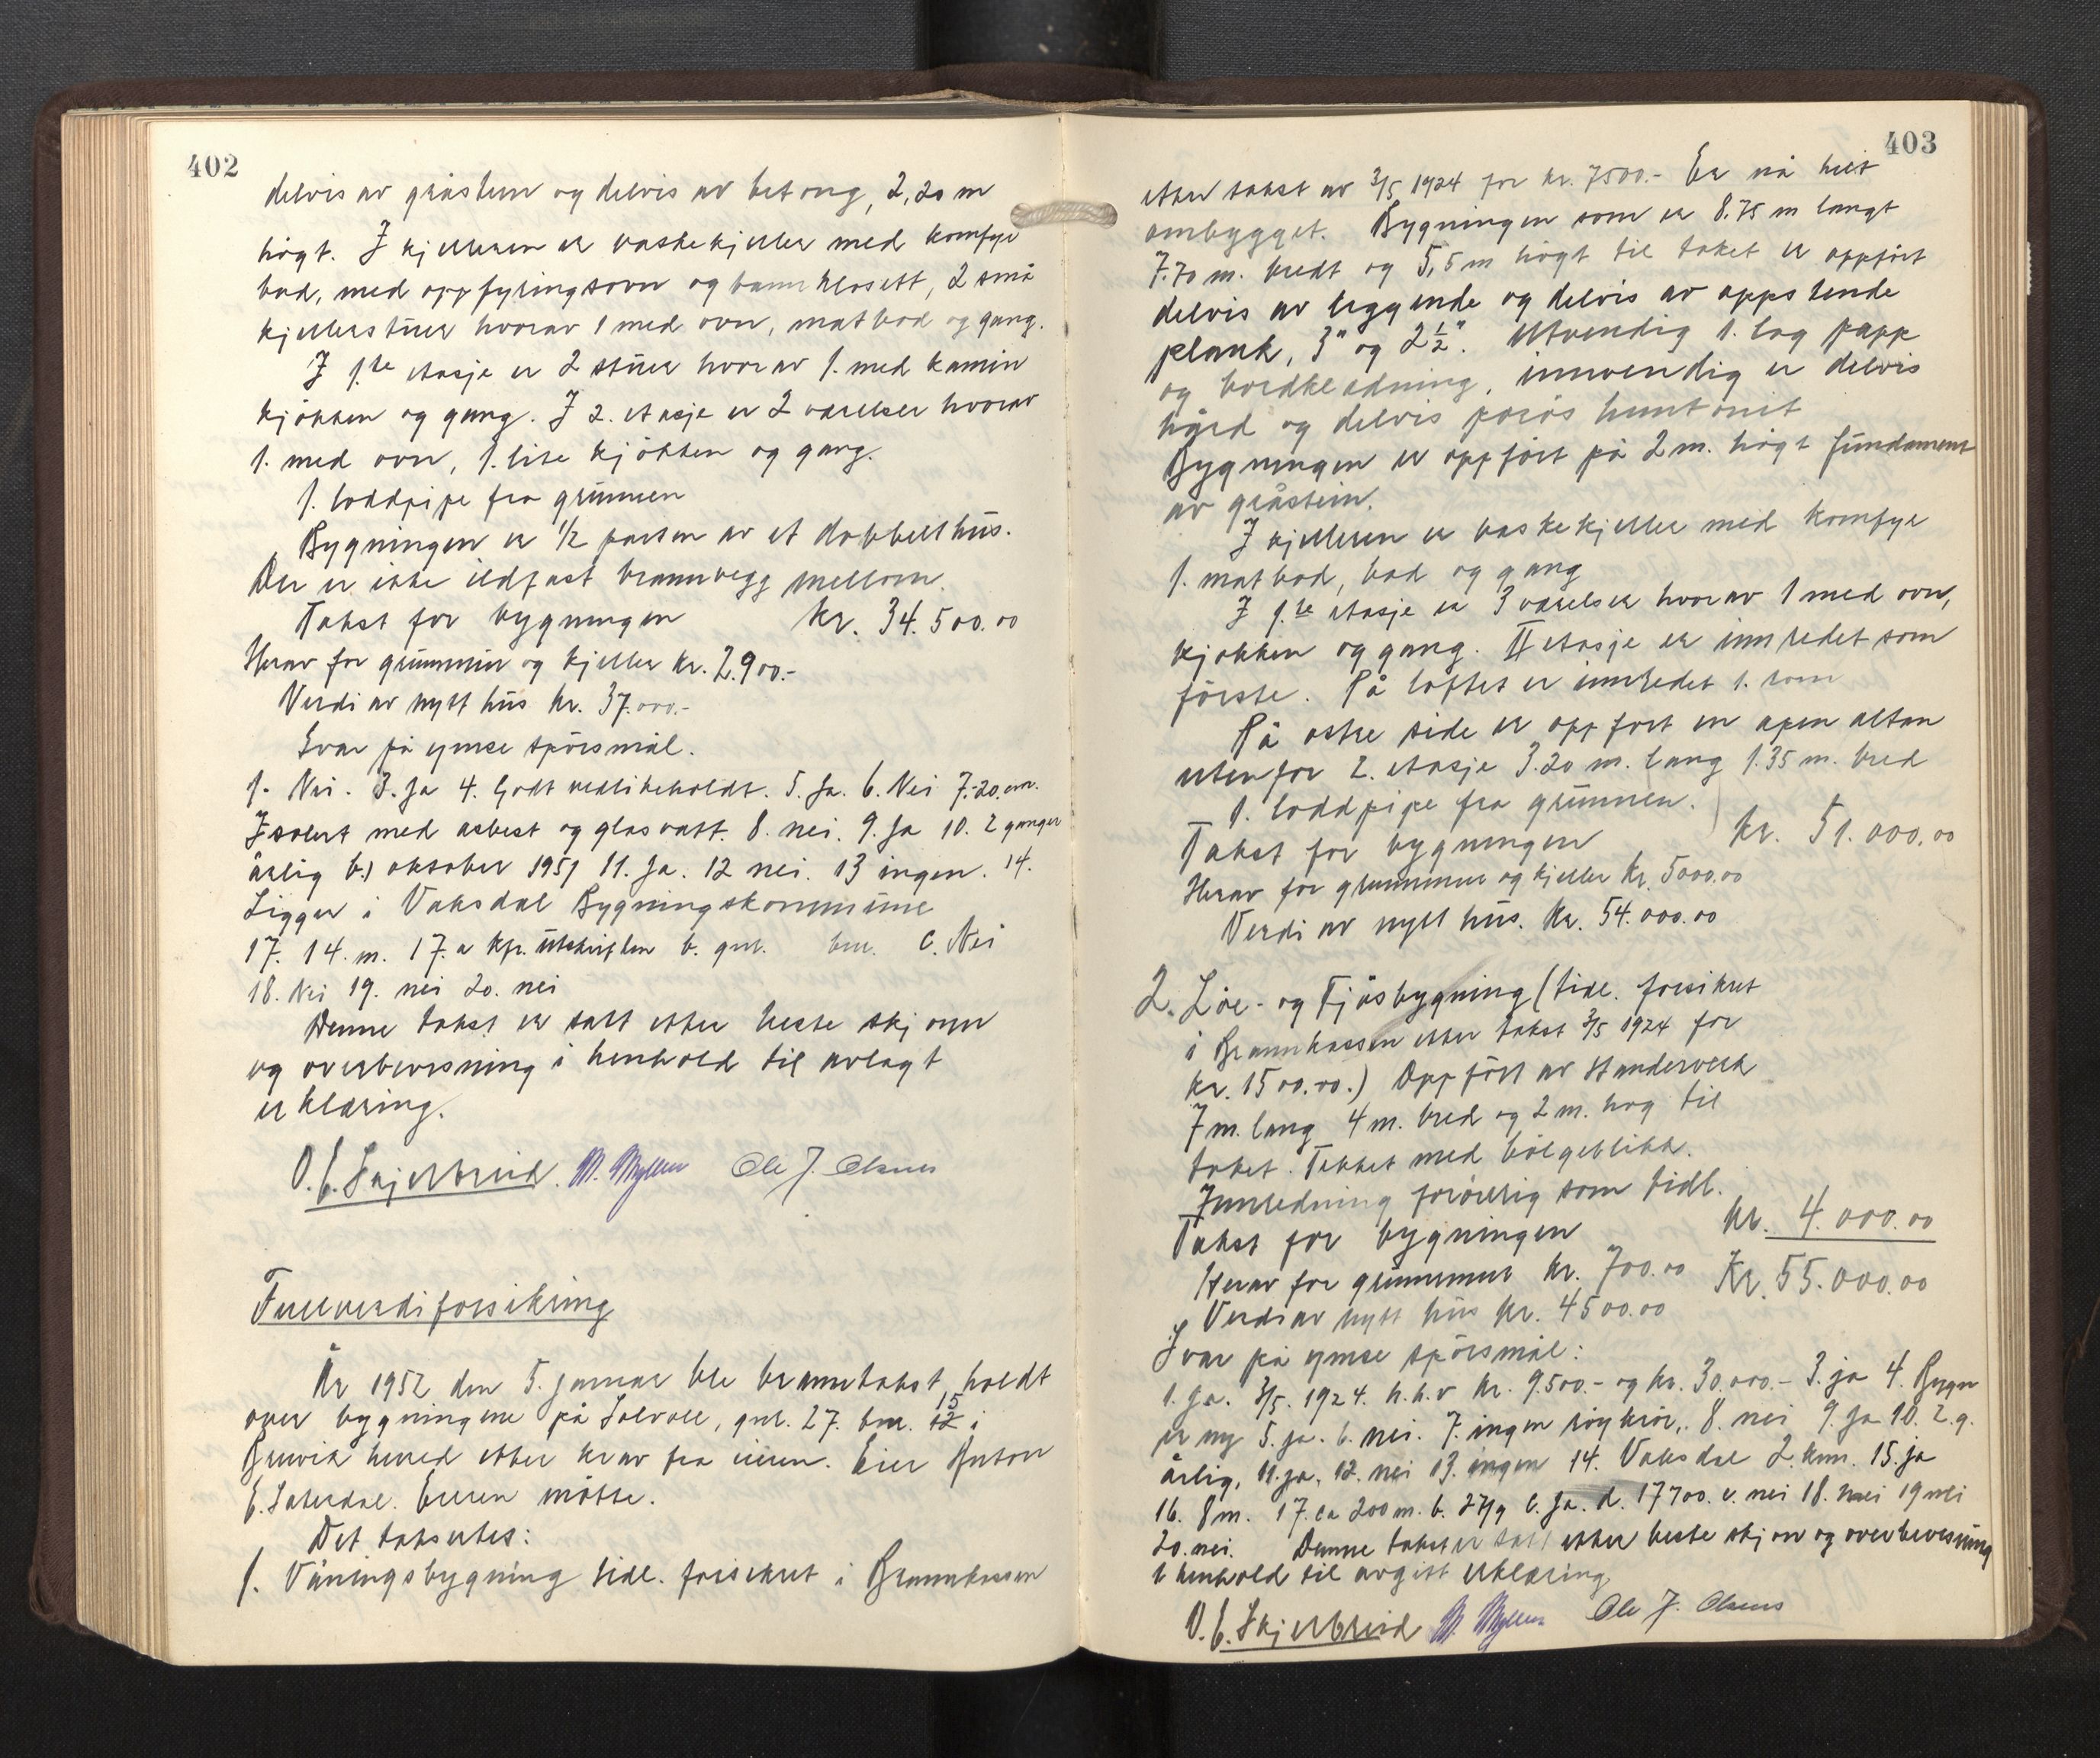 402
delvis av gråstein og delvis av betong, 2,20 m
högt. I kjelleren er vaskekjeller med komfyr
bad, med oppfyringsovn og vannklosett, 2 små
kjellerstuer hvorav 1 med ovn, matbod og gang.
I 1.ste etasje er 2 stuer hvorav 1. med kamin
kjökken og gang. I 2. etasje er 2 værelser hvorav
1. med ovn, 1. lite kjökken og gang.
1. loddpipe fra grunnen
Bygningen er 1/2 parten av et dobbelthus.
Der er ikke ildfast brannvegg mellom.
Takst for bygningen kr. 34.500.00
Herav for grunnmur og kjeller kr. 2.900.-
Verdi av nytt hus kr. 37.000.-
Svar på ymse spörsmål.
1. Nei. 3. Ja 4. Godt vedlikeholdt. 5. Ja. 6. Nei 7. 20 cm.
Isolert med asbest og glasvatt. 8. nei. 9. Ja 10. 2 ganger
årlig b.) oktober 1951 11. Ja. 12 nei. 13 ingen. 14.
Ligger i Vaksdal Bygningskommune
17. 14. m. 17. a kfr. utskriften b. gnr. bnr. c. Nei
18. Nei 19. nei 20. nei
Denne takst er satt etter beste skjönn
og overbevisning i henhold til avlagt
erklæring.
O. E. Skjerbreid. M. Myllen Ole J. Olsnes
Fullverdiforsikring
År 1952 den 5. januar ble branntakst holdt
15
over bygningene på Solvoll, gnr. 27. bnr. 12 i
Bruvik herred etter krav fra eieren. Eier Anton
E. Sæterdal. Eieren mötte.
Det taksertes:
1. Våningsbygning tidl. forsikret i Brannkassen
403
etter takst av 3/5 1924 for kr. 7500.- Er nå helt
ombygget. Bygningen som er 8.75 m langt
7.70 m. bredt og 5,5 m högt til taket er oppfört
delvis av liggende og delvis av oppstående
plank, 3" og 2 1/2". Utvendig 1. lag papp
og bordkledning, innvendig er delvis
hård og delvis porös huntonit
Bygningen er oppfört på 2 m. högt fundament
av gråstein.
I kjelleren er vaskekjeller med komfyr
1. matbod, bad og gang
I 1.ste etasje er 3 værelser hvorav 1 med ovn,
kjökken og gang. II etasje er innredet som
förste. På loftet er innredet 1. rom
På östre side er oppfört en åpen altan
utenfor 2. etasje 3.20 m. lang 1.35 m. bred
1. loddpipe fra grunnen.
Takst for bygningen kr. 51.000.00
Herav for grunnmur og kjeller kr. 5000.00
Verdi av nytt hus. kr. 54.000.00
2. Löe- og Fjösbygning (tidl. forsikret
i Brannkassen etter takst 3/5 1924 for
kr. 1500.00.) Oppfört av standerverk
7 m. lang 4 m. bred og 2 m. hög til
taket. Tekket med bölgeblikk.
Innredning forövrig som tidl.
Takst for bygningen kr. 4.000.00
Herav for grunnmur kr. 700.00 Kr. 55.000.00
Verdi av nytt hus kr. 4500.00
Svar på ymse spörsmål:
1. Ja. 3/5. 1924. h.h.v kr. 9.500.- og kr. 30.000.- 3. ja 4. Bygn
er ny 5. ja. 6. nei. 7. ingen röykrör,. 8. nei 9. Ja 10. 2. g.
årlig, 11. ja, 12. nei 13. ingen 14. Vaksdal 2. km. 15. ja
16. 8 m. 17. ca 200 m. b. 27/9 c. Ja. d. 17700. e. nei 18. nei 19 nei
20. nei. Denne takst er satt etter beste skjön og overbevisning
i henhold til avgitt erklæring
O. E. Skjerbreid M. Myllen Ole J. Olsnes